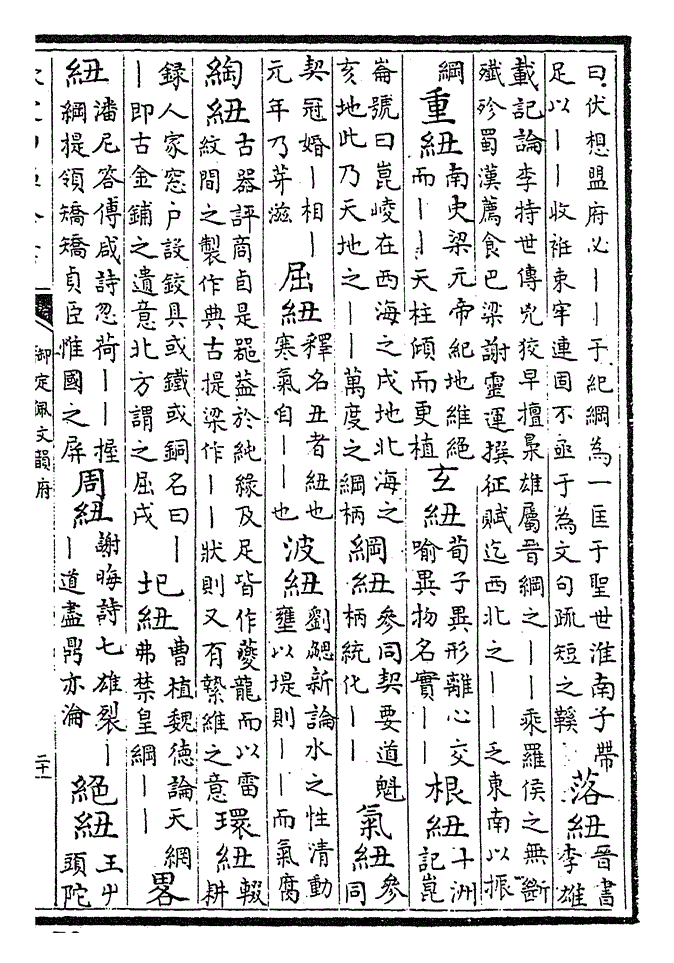 曰伏想盟府必丨丨于紀綱為一匡于聖世淮南子帶
足以丨丨收袵束牢連固不亟于為文句疏短之鞵
落紐
晉書
李雄
載記論李特世傳兇狡早擅梟雄屬晉綱之丨丨乘羅侯之無斷
殲殄蜀漢薦食巴梁謝靈運撰征賦迄西北之丨丨乏東南以振
綱
重紐
南史梁元帝紀地維絕
而丨丨天柱傾而更植
玄紐
荀子異形離心交
喻異物名實丨丨
根紐
十洲
記崑
崙號曰崑崚在西海之戌地北海之
亥地此乃天地之丨丨萬度之綱柄
綱紐
參同契要道魁
柄統化丨丨
氣紐
參
同
契冠婚丨相丨
元年乃芽滋
屈紐
釋名丑者紐也
寒氣自丨丨也
波紐
劉勰新論水之性清動
壅以堤則丨丨而氣腐
綯紐
古器評商卣是器蓋於純緣及足皆作夔龍而以雷
紋間之製作典古提梁作丨丨狀則又有縶維之意
環紐
輟
耕
録人家窓户設鉸具或鐵或銅名曰丨
丨即古金鋪之遺意北方謂之屈戌
圮紐
曹植魏德論天網
弗禁皇綱丨丨
畧
紐
潘尼答傅咸詩忽荷丨丨握
綱提領矯矯貞臣惟國之屏
周紐
謝晦詩七雄裂丨
丨道盡鼎亦淪
絕紐
王屮
頭陀
御定佩文韻府
二十一